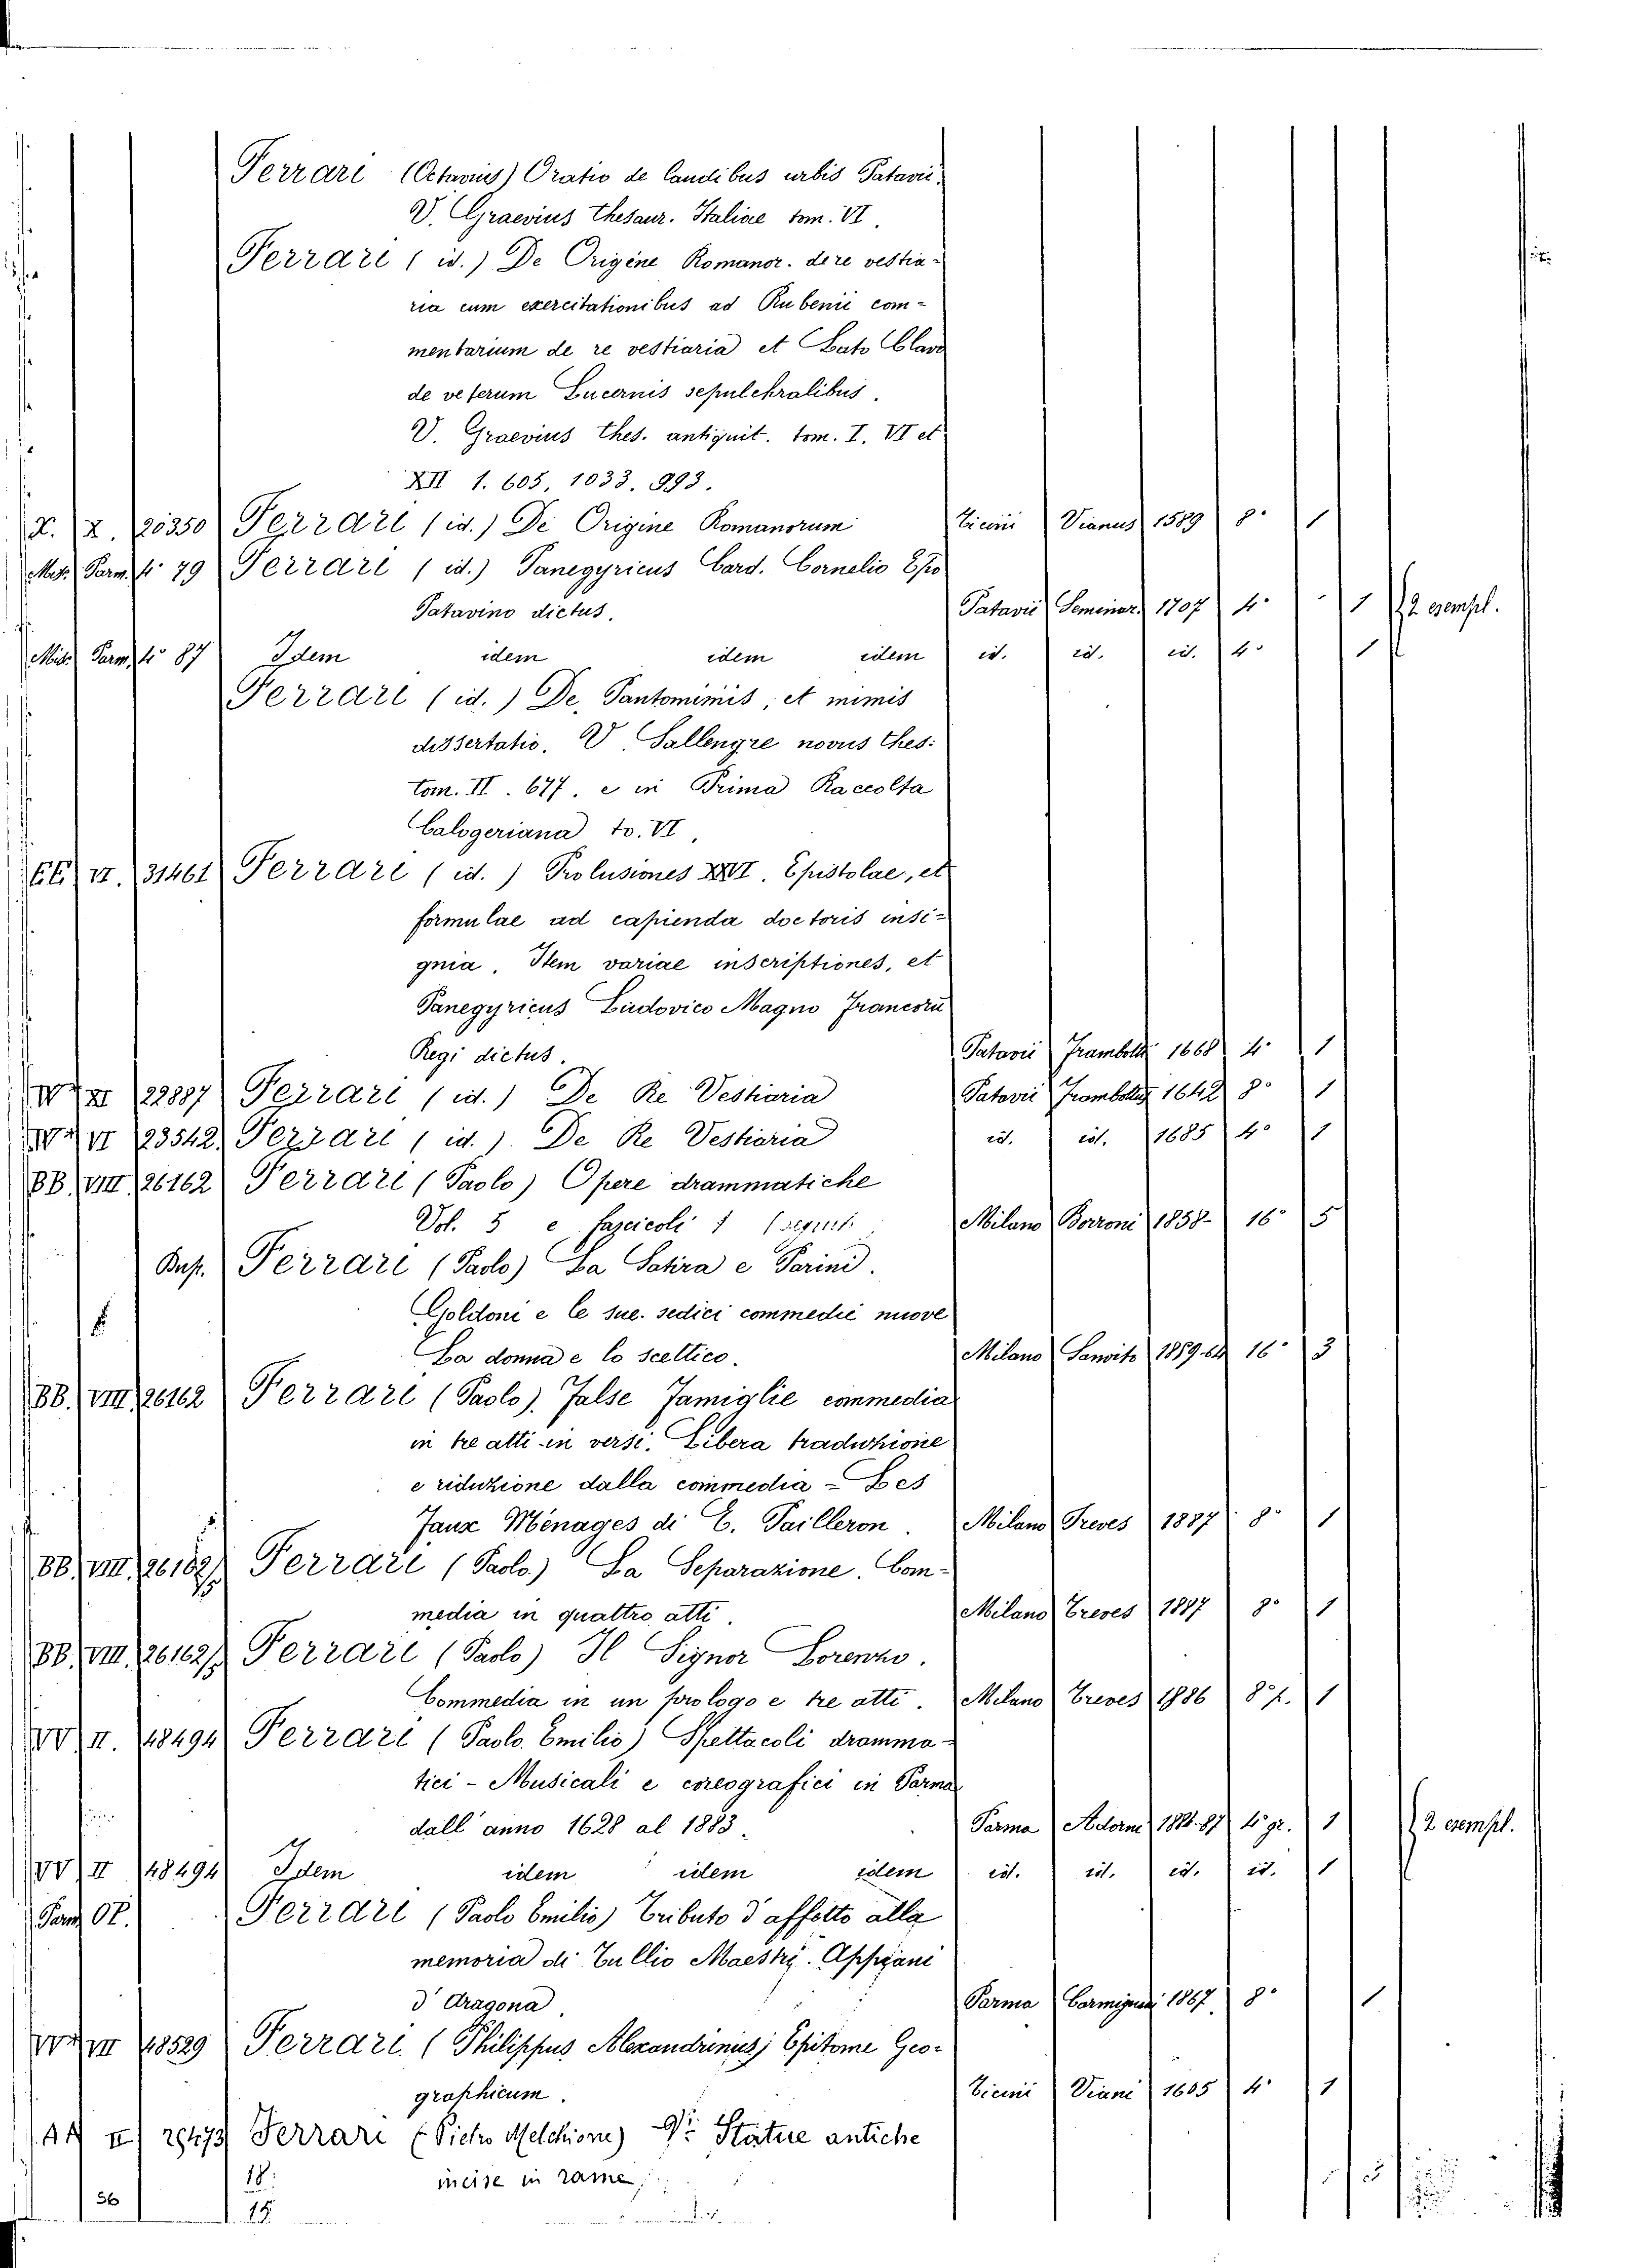 Ferrari (Octavius) Oratio de laudibus urbis Patavii.
V. Graevius Thesaur. Italiae tom. VI.
Ferrari (id.) De Origine Romanor. de re vestia-
ria cum exercitationibus ad Rubenii com-
mentarium de re vestiaria et Lato Clavo
de veterum Lucernis sepulchralibus.
V. Graevius Thes. antiquit. tom. I. VI et
XII 1. 605, 1033. 993.
X. X. 20350 Ferrari (id.) De Origine Romanorum Ticini Vianus 1589 8° 1
Misc. Parm. 4° 79 Ferrari (id.) Panegyricus Card. Cornelio Epo
Patavino dictus. Patavii Seminar. 1707 4° 1 2 esempl.
Misc. Parm. 4° 87 Idem idem idem idem id. id. id. 4° 1
Ferrari (id.) De Pantomimis, et mimis
dissertatio. V. Sallengre novus Thes:
tom. II. 677. e in Prima Raccolta
Calogeriana to. VI,
EE VI. 31461 Ferrari (id.) Prolusiones XXVI. Epistolae, et
formulae ad capienda doctoris insi-
gnia. Item variae inscriptiones, et
Panegyricus Ludovico Magno Francoru
Regi dictus. Patavii Frambotti 1668 4° 1
XI 22887 Ferrari (id.) De Re Vestiaria Patavii Frambottus 1642 8° 1
VI 23542 Ferrari (id.) De Re Vestiaria id. id. 1685 4° 1
BB. VIII 26162 Ferrari (Paolo) Opere drammatiche
Vol. 5 e fascicoli 1 Milano Borroni 1858- 16° 5
Ferrari (Paolo) La Satira e Parini.
Goldoni e le sue. sedici commedie nuove
La donna e lo scettico. Milano Sanvito 1859-64 16° 3
BB. VIII 26162 Ferrari (Paolo). False Famiglie commedia
in tre atti in versi. Libera traduzione
e riduzione dalla commedia - Les
Faux Ménages di E. Pailleron. Milano Treves 1887 8° 1
BB. VIII. 26162 Ferrari (Paolo) La Separazione. Com-
media in quattro atti. Milano Treves 1887 8° 1
BB. VIII. 26162 Ferrari (Paolo) Il Signor Lorenzo.
Commedia in un prologo e tre atti. Milano Treves 1886 8° 1
II. 48494 Ferrari (Paolo Emilio) Spettacoli dramma-
tici - Musicali e coreografici in Parma
dall'anno 1628 al 1883. Parma Adorni 1884-87 4° gr. 1 2 esempl.
II 48494 Idem idem idem idem id. id. id. id. 1
Ferrari (Paolo Emilio) Tributo d'affetto alla
memoria di Tullio Maestri. Appiani
d'Aragona. Parma Carmignani 1867 8° 1
48529 Ferrari (Philippus Alexandrinus) Epitome Geo-
graphicum. Ticini Viani 1605 4° 1
AA II 29473 Ferrari (Pietro Melchiorre) Statue antiche
18. incise in rame,
56